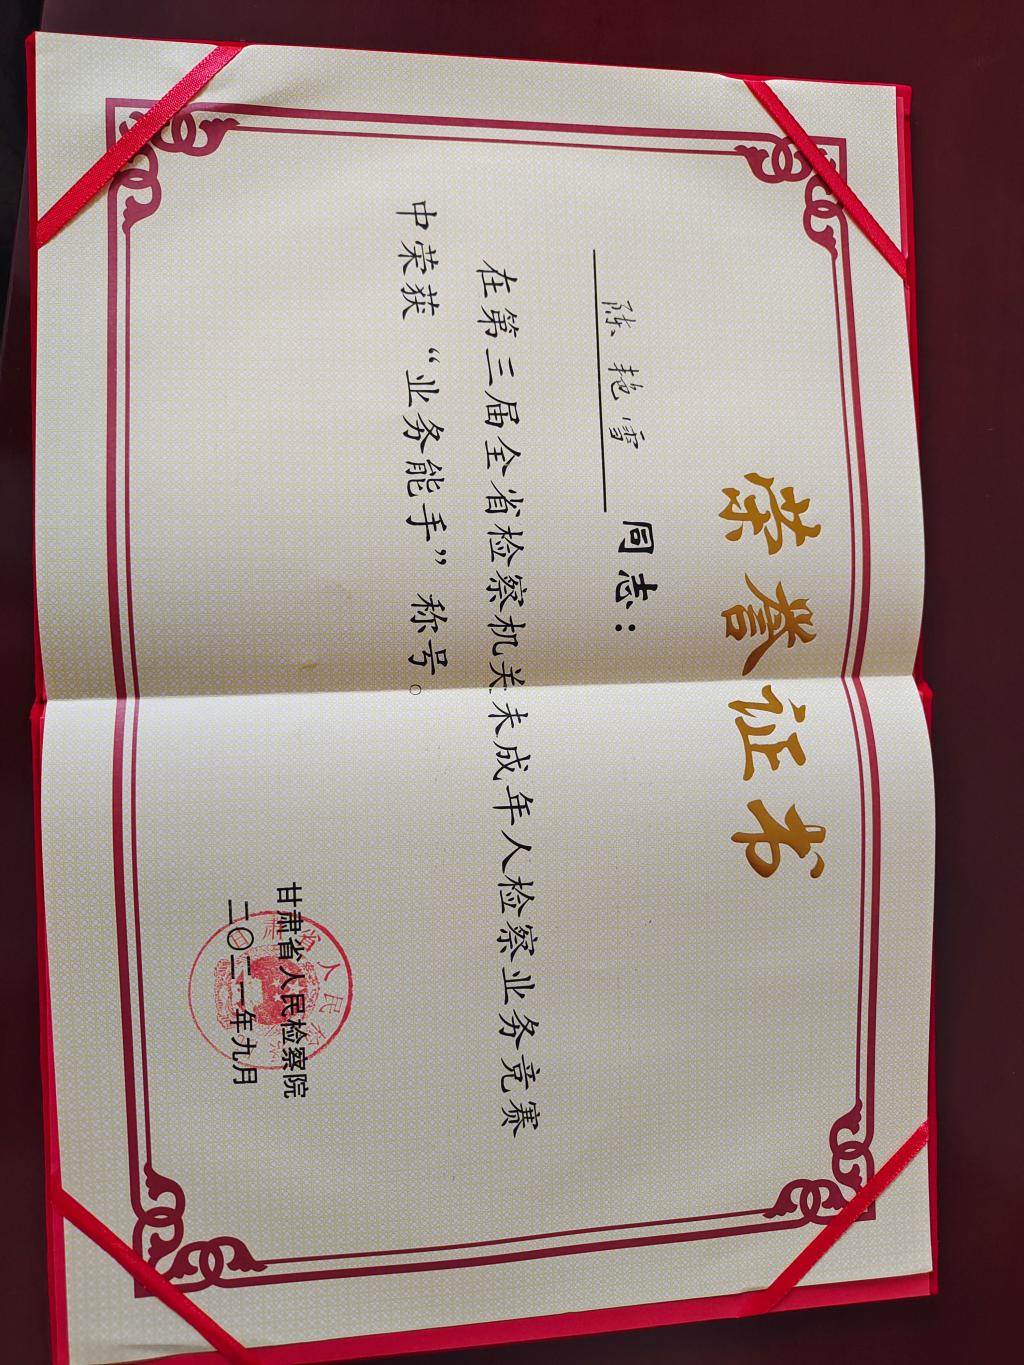 荣誉证书
陈艳雪 同志：
在第三届全省检察机关未成年人检察业务竞赛
中荣获“业务能手”称号。
甘肃省人民检察院
二〇二一年九月